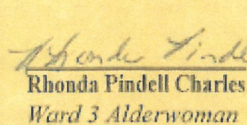 Rhonda Pinde
Rhonda Pindell Charles
Ward 3 Alderwoman